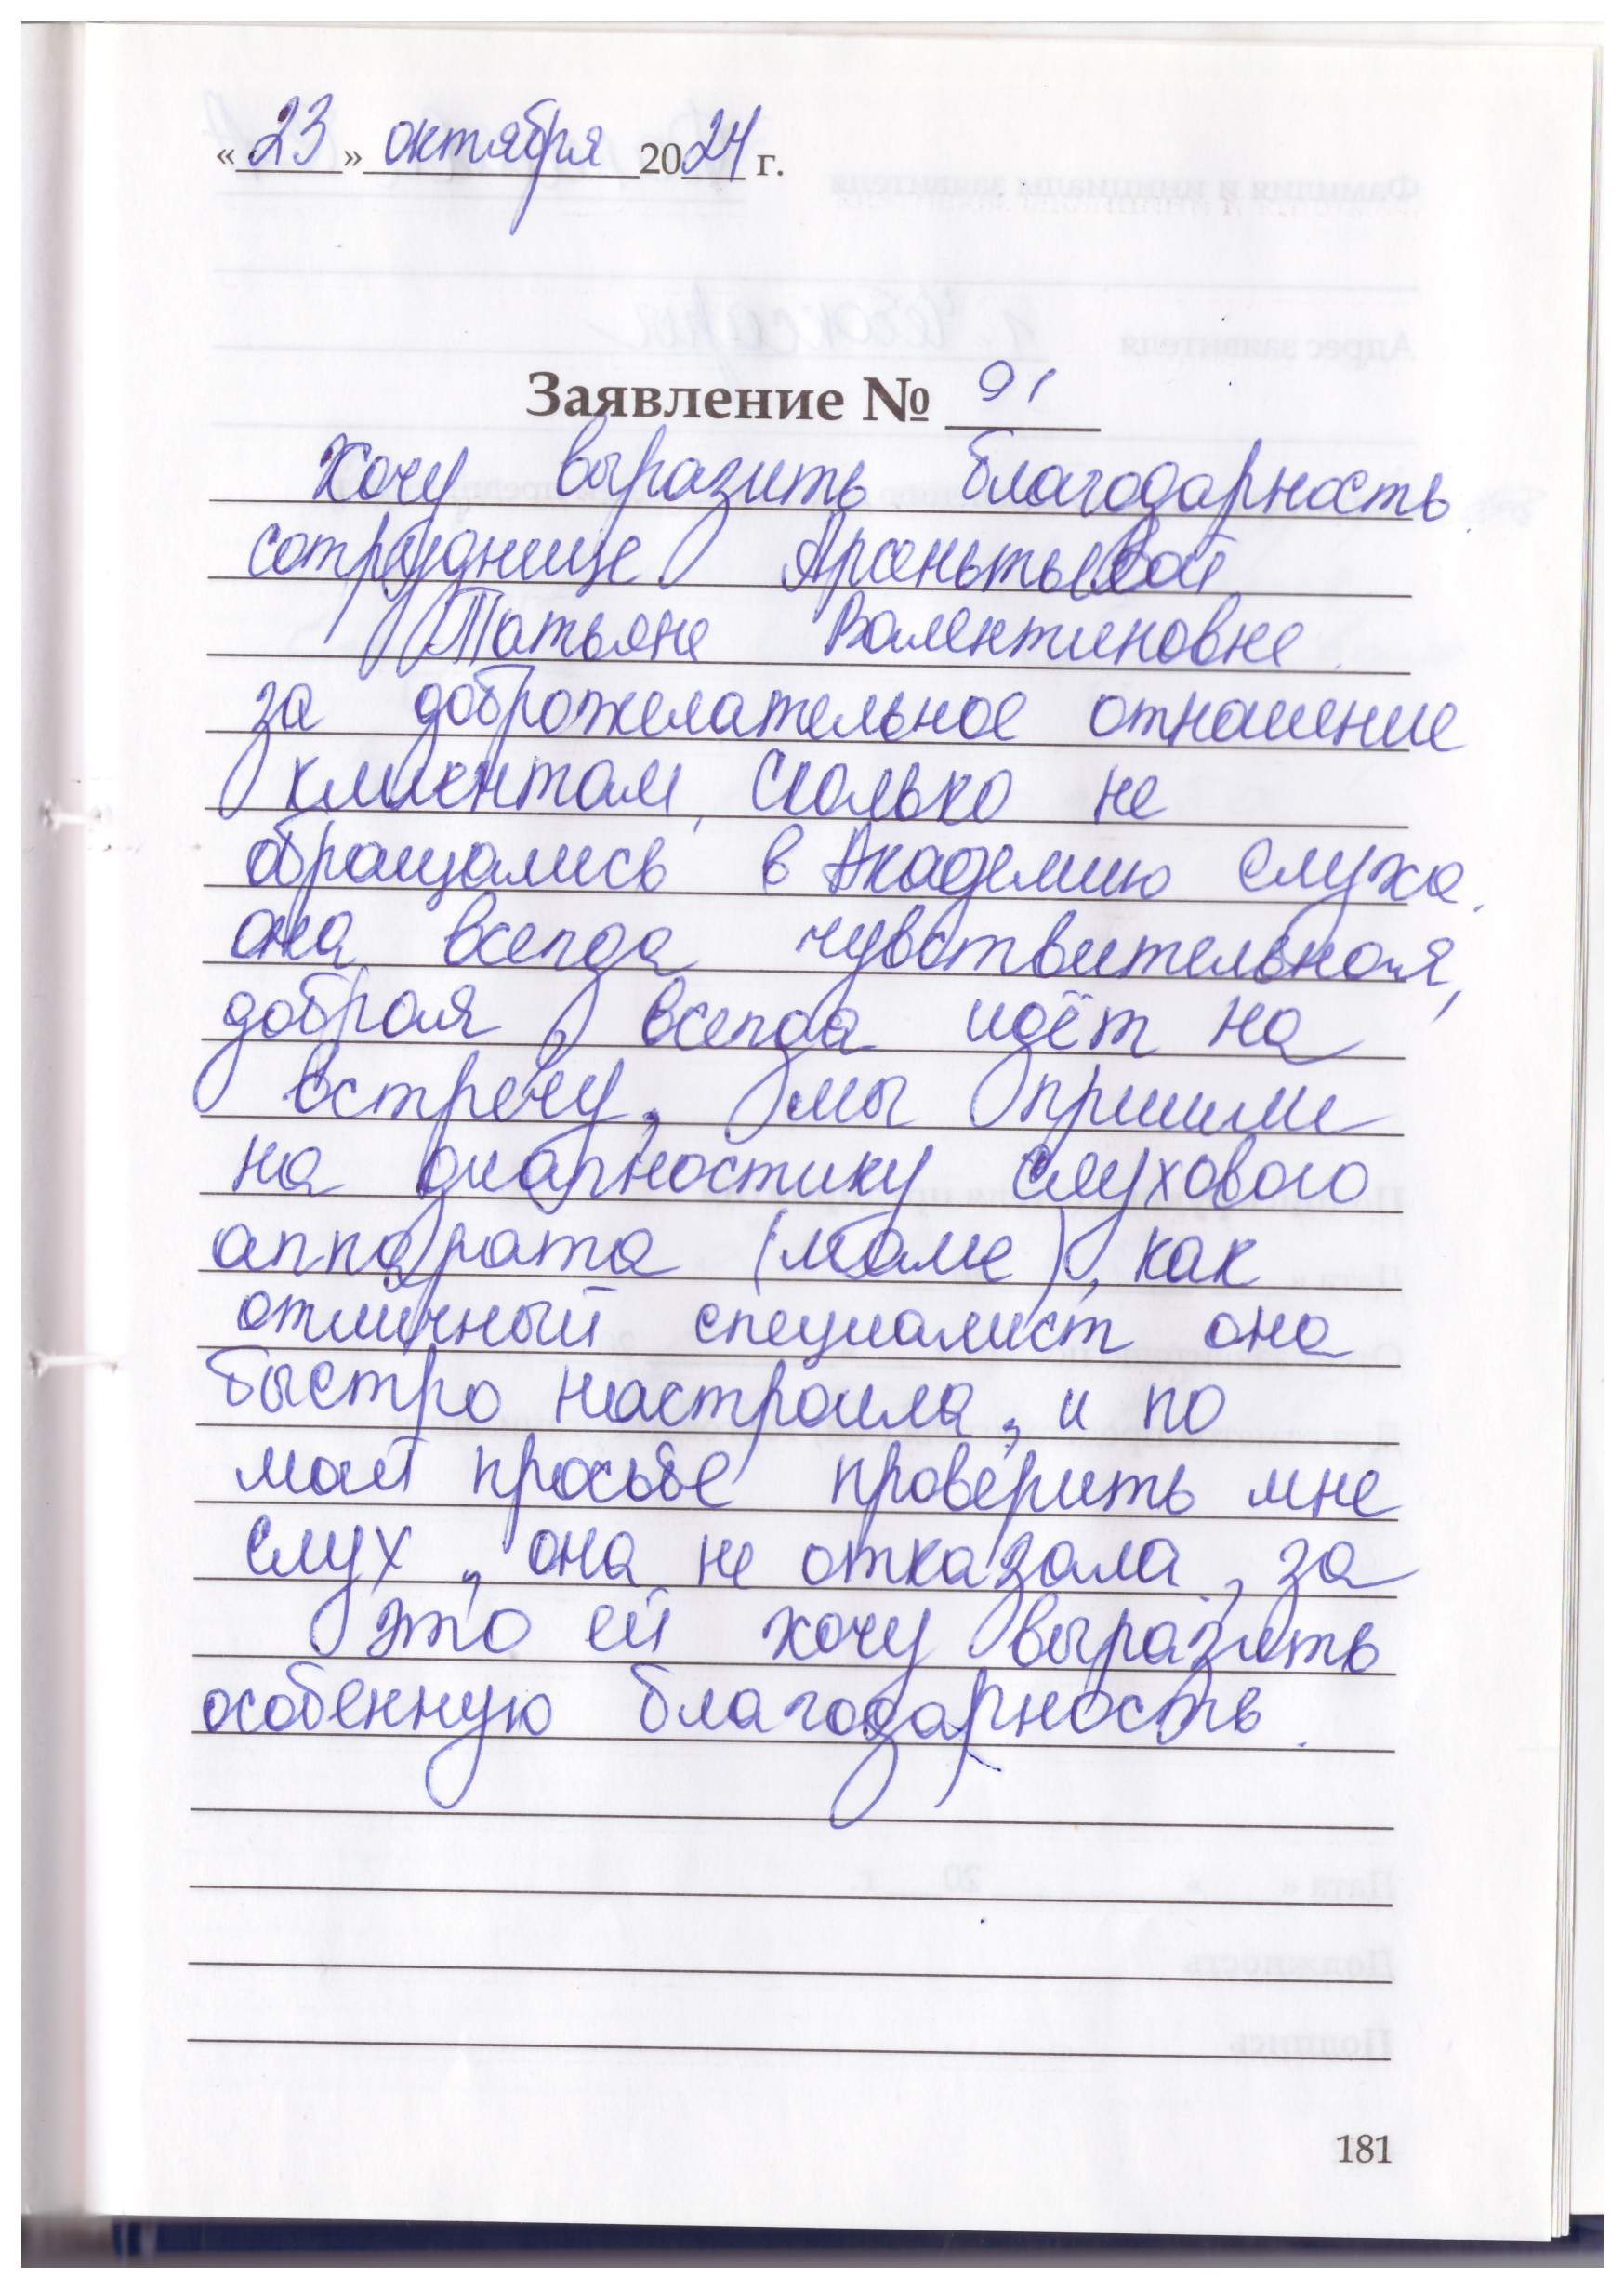 «23» октября 2024 г.
Заявление № 91
Хочу выразить благодарность
сотруднице Арсентьевой
Татьяне Валентиновне
за доброжелательное отношение
клиентам, сколько не
обращались в Академию слуха
она всегда чувствительная,
добрая, всегда идёт на
встречу, мы пришли
на диагностику слухового
аппарата (маме), как
отличный специалист она
быстро настроила, и по
моей просьбе проверить мне
слух, она не отказала, за
это ей хочу выразить
особенную благодарность.
181